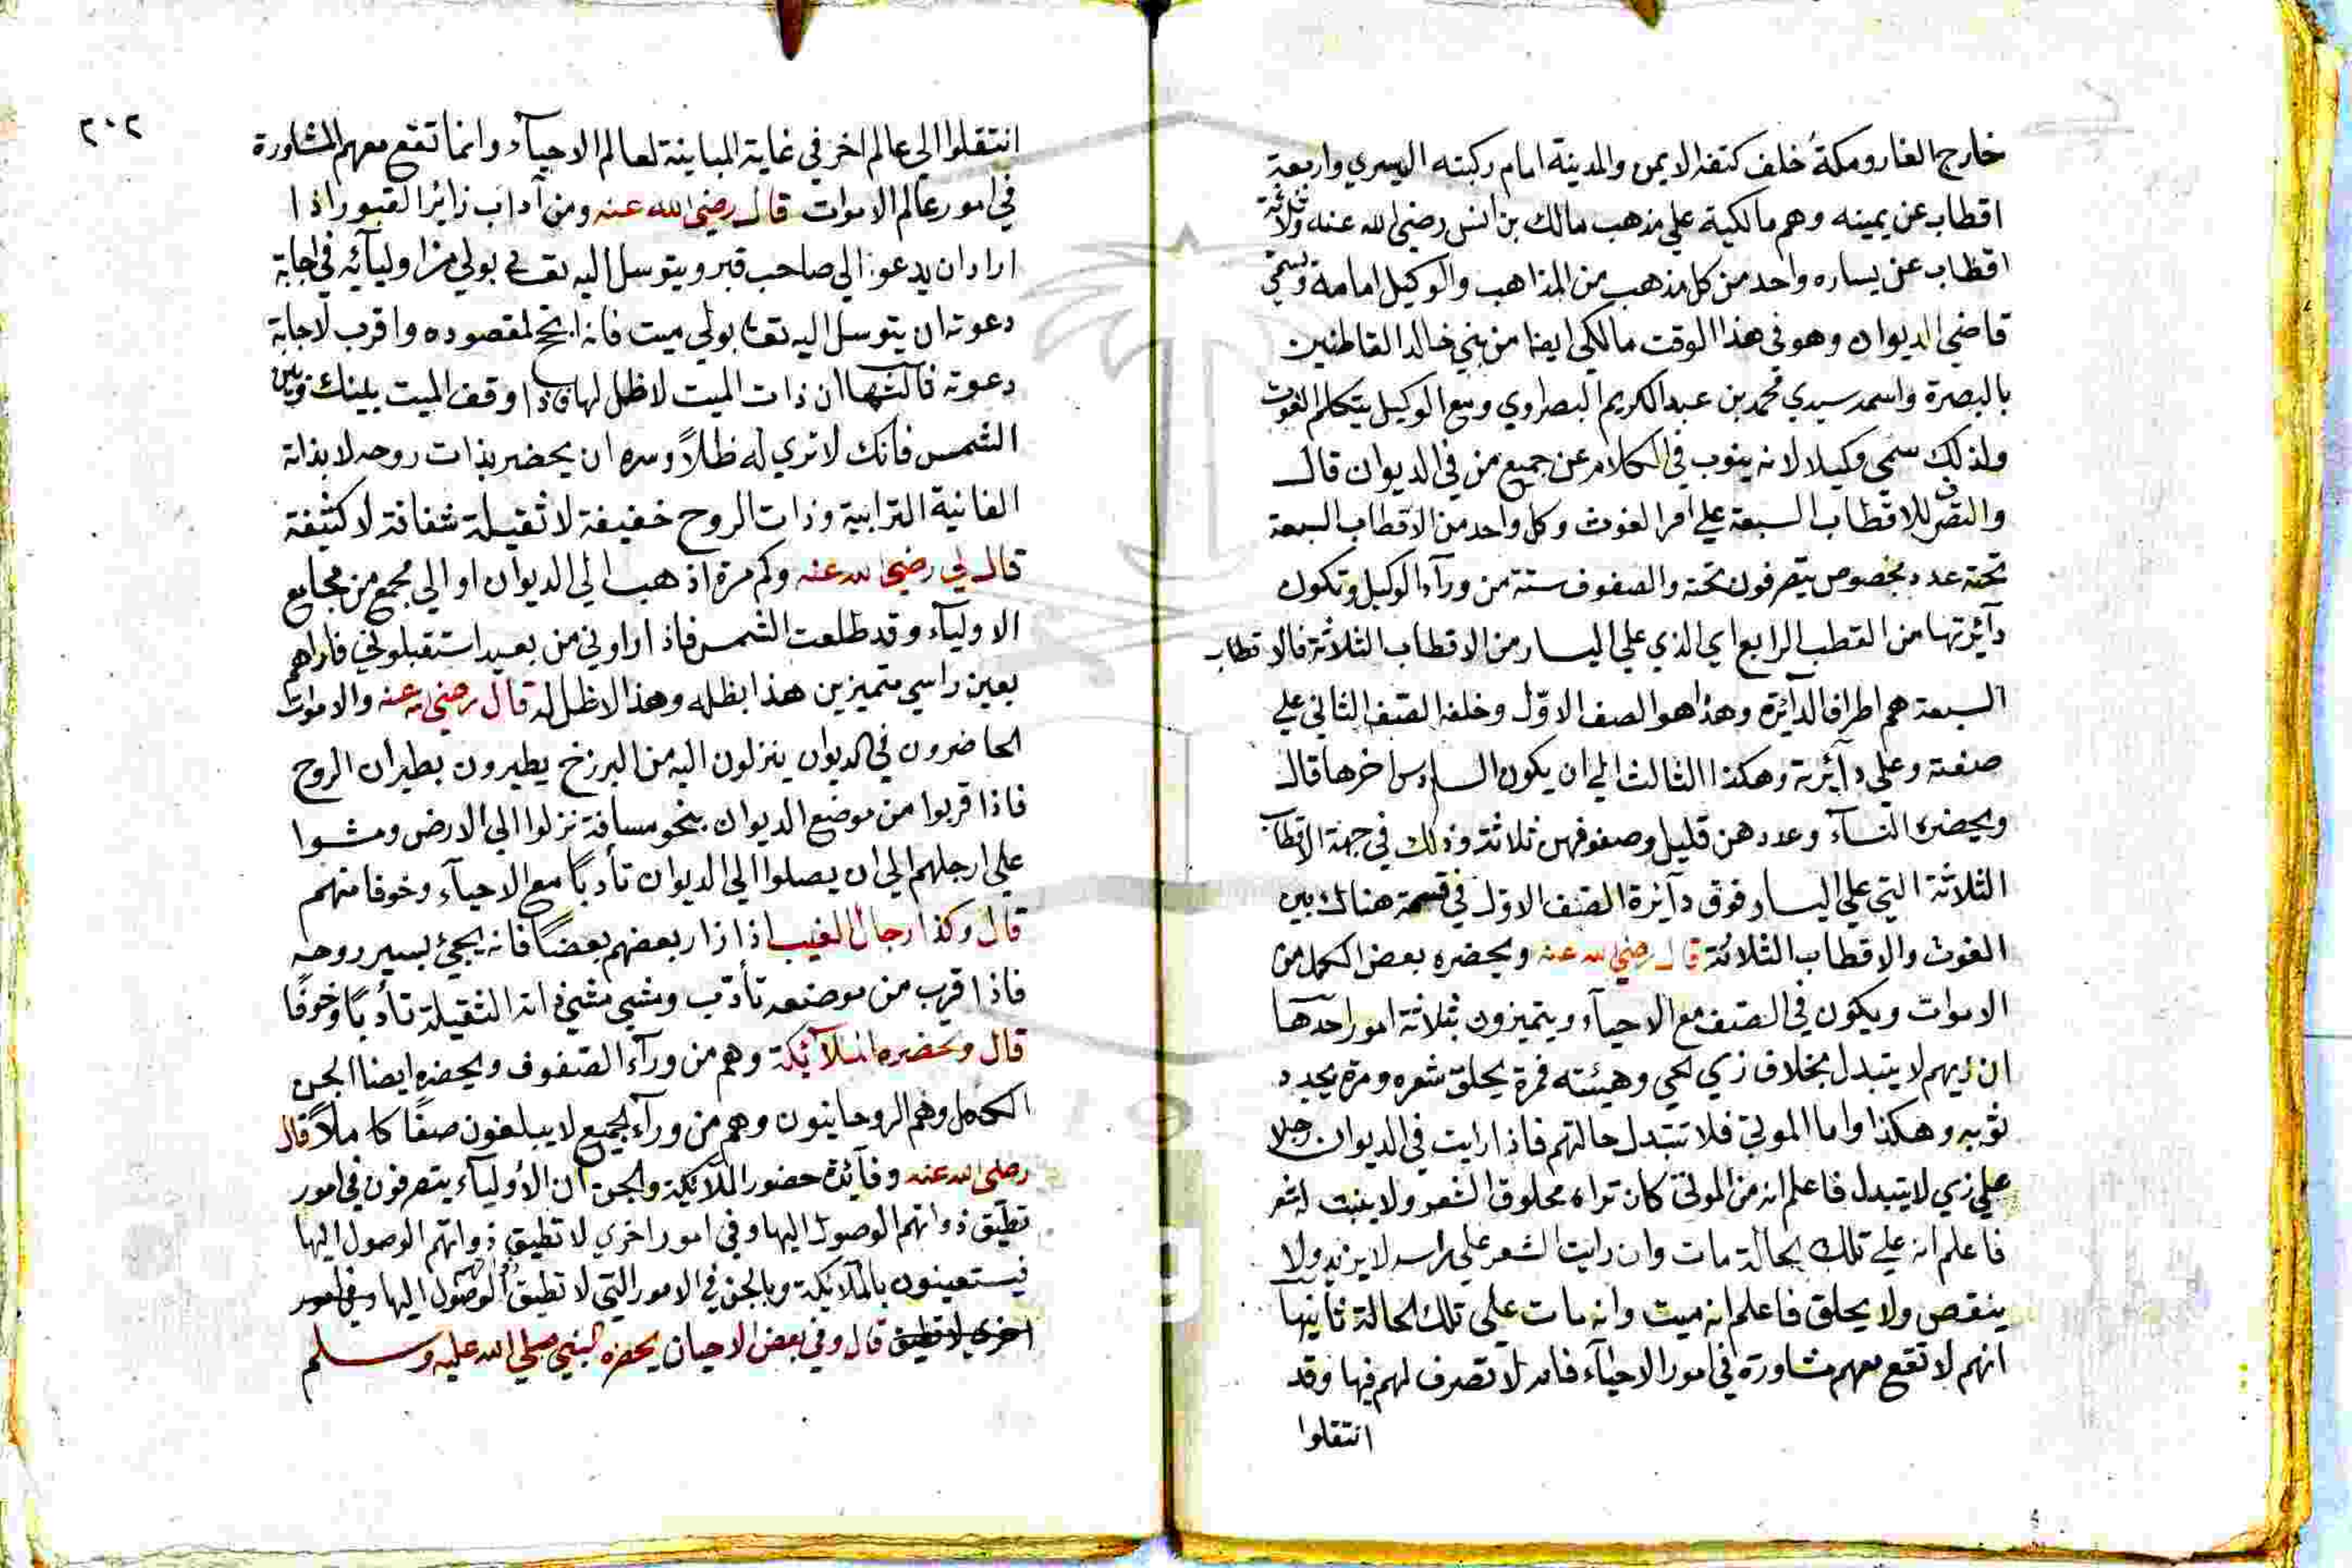 خارج الغار ومكة خلف كتفه الايمن والمدينة امام ركبته اليسري واربعة
اقطاب عن يمينه وهم مالكية علي مذهب مالك بن انس رضي الله عنه وثلاثة
اقطاب عن يساره واحد من كل مذهب من المذاهب والوكيل امامه ويسمي
قاضي الديوان وهو في هذا الوقت مالكي ايضا من بني خالد القاطنين
بالبصرة واسمه سيدي محمد بن عبد الكريم البصراوي ومع الوكيل يتكلم الغوث
ولذلك سمي وكيلا لانه ينوب في الكلام عن جميع من في الديوان قال
والتصرف للاقطاب السبعة علي امر الغوث وكل واحد من الاقطاب السبعة
تحته عدد مخصوص يتصرفون تحته والصفوف ستة من ورآء الوكيل وتكون
دآئرتها من القطب الرابع اي الذي علي اليسار من الاقطاب الثلاثة فالاقطاب
السبعة هم اطراف الدآئرة وهذا هو الصف الاوّل وخلفه الصف الثاني علي
صفته وعلي دآئرته وهكذا الثالث الي ان يكون السادس اخرها قال
ويحضره النسآء وعددهن قليل وصفوفهن ثلاثة وذلك في جهة الاقطاب
الثلاثة التي علي اليسار فوق دآئرة الصف الاوّل في فسحة هناك بين
الغوث والاقطاب الثلاثة قال رضي الله عنه ويحضره بعض الكمل من
الاموات ويكون في الصف مع الاحيآء ويتميزون بثلاثة امور احدها
ان زيهم لا يتبدل بخلاف زي الحي وهيئته فمرة يحلق شعره ومرة يجدد
ثوبه وهكذا واما الموتي فلا تتبدل حالتهم فاذا رايت في الديوان رجلا
علي زي لا يتبدل فاعلم انه من الموتي كان تراه محلوق الشعر ولا ينبت له شعر
فاعلم انه علي تلك الحالة مات وان رايت الشعر علي راسه لا يزيد ولا
ينقص ولا يحلق فاعلم انه ميت وانه مات علي تلك الحالة ثانيها
انهم لا تقع معهم مشاورة في امور الاحيآء فانه لا تصرف لهم فيها وقد
انتقلوا
٢٠٢
انتقلوا الي عالم اخر في غاية المباينة لعالم الاحيآء وانما تقع معهم المشاورة
في امور عالم الاموات قال رضي الله عنه ومن آداب زائر القبور اذا
اراد ان يدعو الي صاحب قبر ويتوسل اليه تعالي بولي من اوليآئه في اجابة
دعوته ان يتوسل اليه تعالي بولي ميت فانه انجح لمقصوده واقرب لاجابة
دعوته ثالثها ان ذات الميت لا ظل لها فاذا وقف الميت بينك وبين
الشمس فانك لا تري له ظلاً وسره ان يحضر بذات روحه لا بذاته
الفانية الترابية وذات الروح خفيفة لا ثقيلة شفافة لا كثيفة
قال لي رضي الله عنه وكم مرة اذهب الي الديوان او الي مجمع من مجامع
الاوليآء وقد طلعت الشمس فاذا راوني من بعيد استقبلوني فاراهم
بعين راسي متميزين هذا بظله وهذا لا ظل له قال رضي الله عنه والاموات
الحاضرون في الديوان ينزلون اليه من البرزخ يطيرون بطيران الروح
فاذا قربوا من موضع الديوان بنحو مسافة نزلوا الي الارض ومشوا
علي ارجلهم الي ان يصلوا الي الديوان تأدباً مع الاحيآء وخوفا منهم
قال وكذا رجال الغيب اذا زار بعضهم بعضًا فانه يجيئ بسير روحه
فاذا قرب من موضعه تأدّب ومشي مشي ذاته الثقيلة تأدباً وخوفًا
قال وتحضره الملآئكة وهم من ورآء الصفوف ويحضره ايضا الجن
الكمل وهم الروحانيون وهم من ورآء الجميع لا يبلغون صفًا كاملاً قال
رضي الله عنه وفآئدة حضور الملآئكة والجن ان الاوليآء يتصرفون في امور
تطيق ذواتهم الوصول اليها وفي امور اخري لا تطيق ذواتهم الوصول اليها
فيستعينون بالملآئكة وبالجن في الامور التي لا تطيق ذواتهم الوصول اليها وفي امور
اخري لا تطيق قال وفي بعض الاحيان يحضره النبي صلي الله عليه وسلم